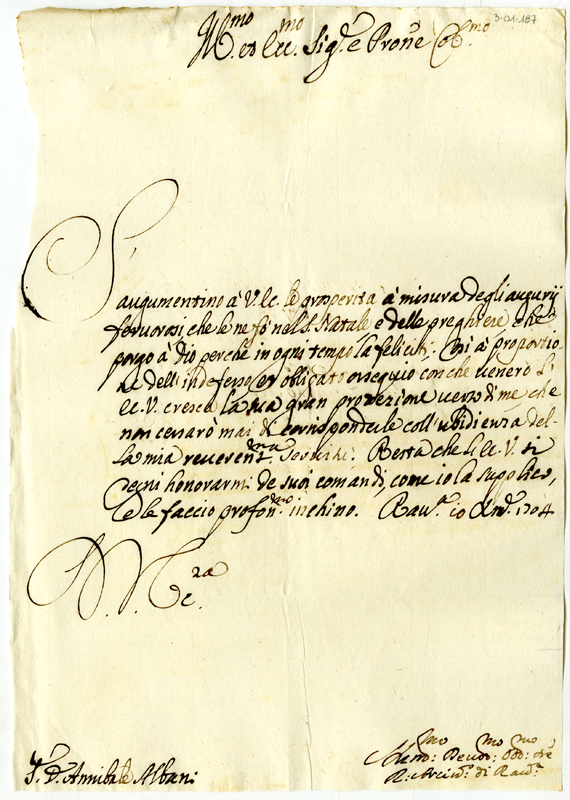 3-01-187
Ill.mo et Ecc.mo Sig.r e Pron̄e Col.mo
S'
augumentino à V. Ec. le prosperità à misura degli augurij
fervorosi che le ne fò nel S. Natale e delle preghiere che
porgo à Dio perche in ogni tempo la feliciti. Così à proportio
ne dell'indefesso et obligato ossequio con che venero l'
Ec. V. cresca la sua gran protezione verso di me che
non cessarò mai di corrisponderle coll'ubidienza del-
la mia reverent.ma servitù. Resta che l'Ec. V. si
degni honorarmi de suoi comandi, come io la supplico,
e le faccio profon.mo inchino. Rav.a 10 Xbr. 1704
D. V. Ec.za
S.r D. Annibale Albani
Devot: Obb:
di Rav.a